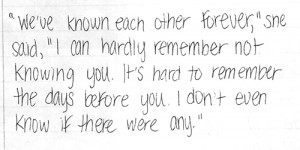 "We've known each other forever," she
said, "I can hardly remember not
knowing you. It's hard to remember
the days before you. I don't even
know if there were any."